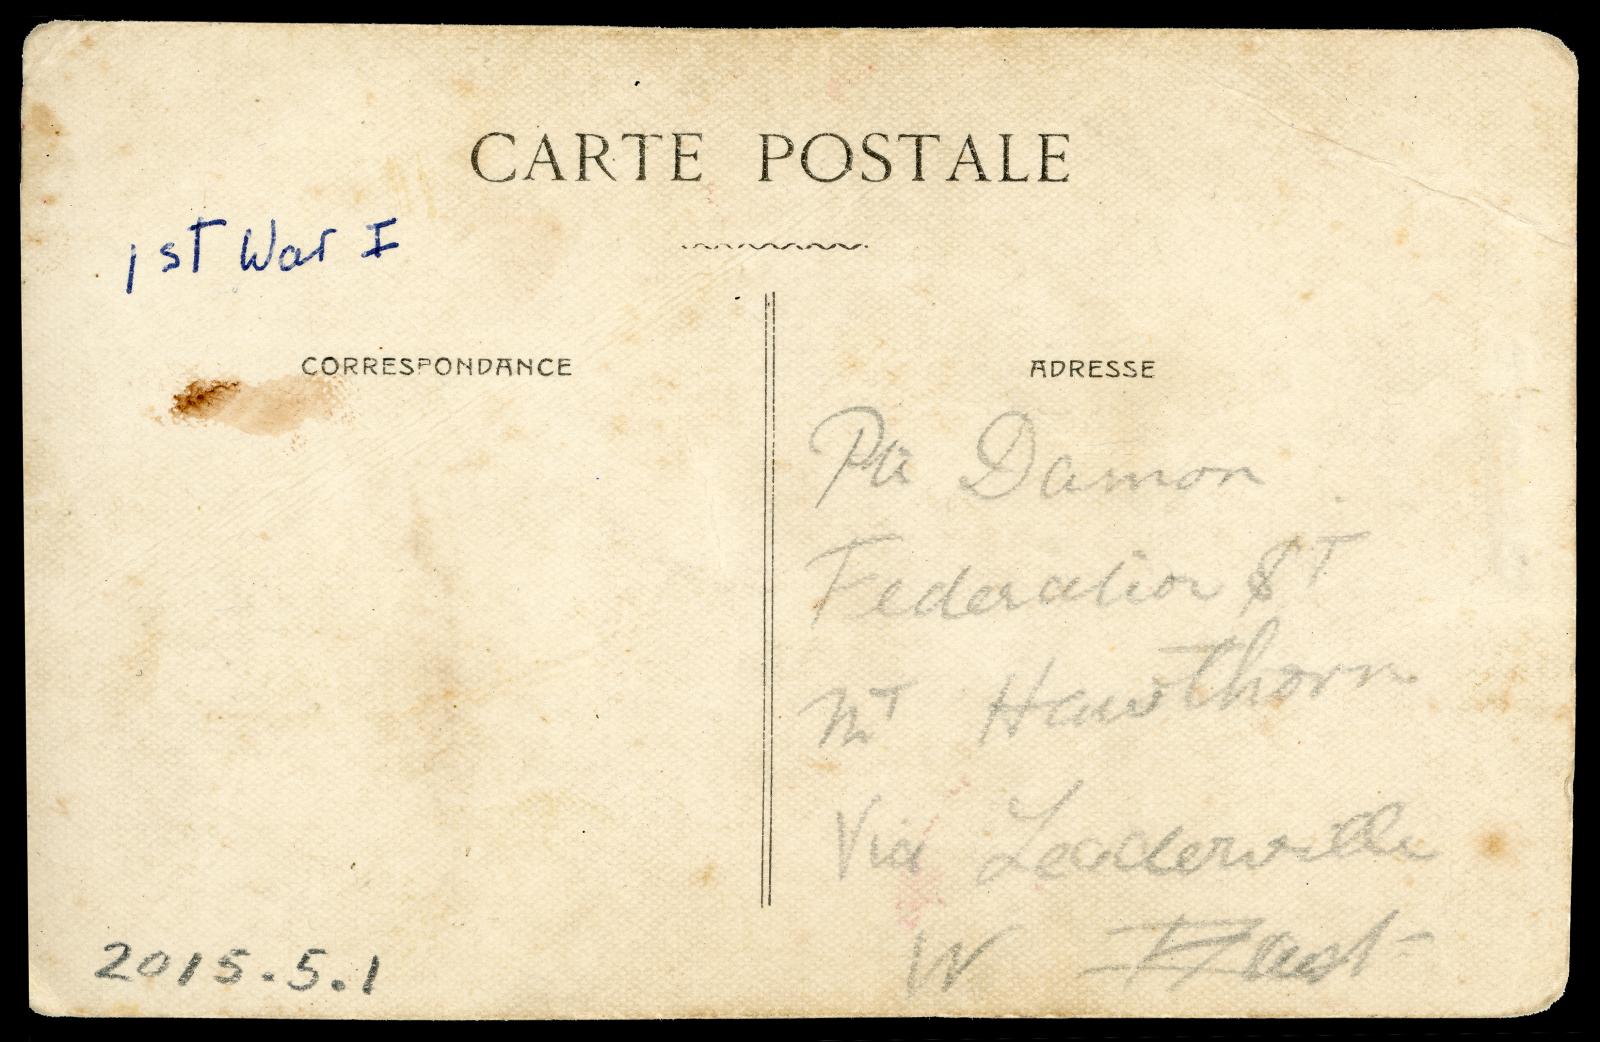 CARTE POSTALE
1st War I
CORRESPONDANCE
ADRESSE
Pte Damon
Federation ST
MT Hawthorn
Via Leaderville
W Aust
2015.5.1